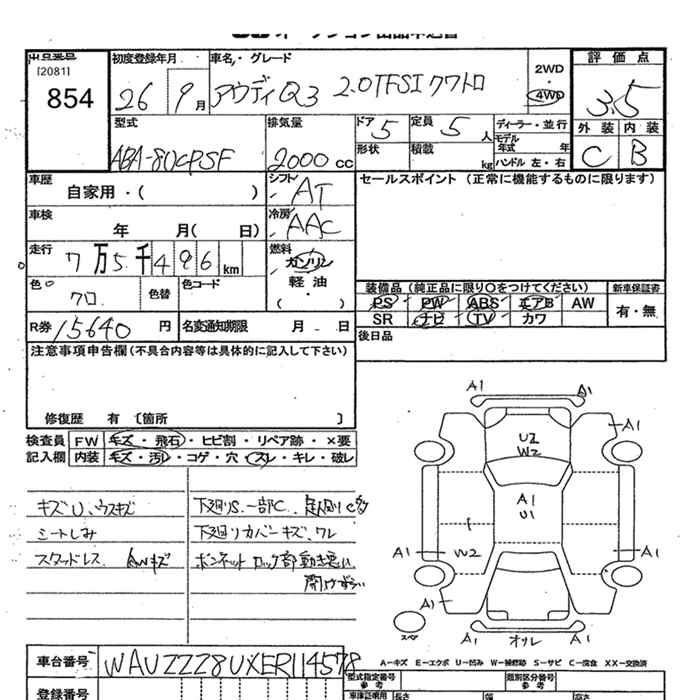 オークション出品申込書
出品番号 [2081] 854
初度登録年月 26 9月
車名・グレード アウディQ3 2.0TFSIクワトロ
2WD ・ 4WD
評価点 3.5
外装 内装
C B
型式 ABA-8UCPSF
排気量 2000 cc
ドア 5
形状
定員 5 人
積載 kg
ディーラー・並行
モデル年式 年
ハンドル 左・右
車歴 自家用・( )
シフト AT
セールスポイント (正常に機能するものに限ります)
車検 年 月( 日)
冷房 AAC
走行 7万5千496km
燃料 ガソリン
軽油
・( )
色 クロ
色替
色コード
装備品 (純正品に限り○をつけてください)
新車保証書
PS PW ABS エアB AW
SR ナビ TV カワ
有・無
R券 15640 円
名変通知期限 月 日
後日品
注意事項申告欄(不具合内容等は具体的に記入して下さい)
修復歴 有 〔箇所 〕
検査員記入欄
FW キズ・飛石・ヒビ割・リペア跡・×要
内装 キズ・汚レ・コゲ・穴・スレ・キレ・破レ
キズU、ウスキズ
シートしみ
スタッドレス AWキズ
下廻りS.一部C.
下廻りカバーキズ、ワレ
ボンネットロック部動き悪い
開けずらい
A1 A1
A1
U2
W2
A1
U1
A1 W2 A1
A1
スペア
A1 オツレ A1
A-キズ E-エクボ U-凹み W-補修跡 S-サビ C-腐食 XX-交換済
車台番号 WAUZZZ8UXER114578
型式指定番号 参考
類別区分番号 参考
登録番号
車庫証明用 参考
長さ 幅 高さ